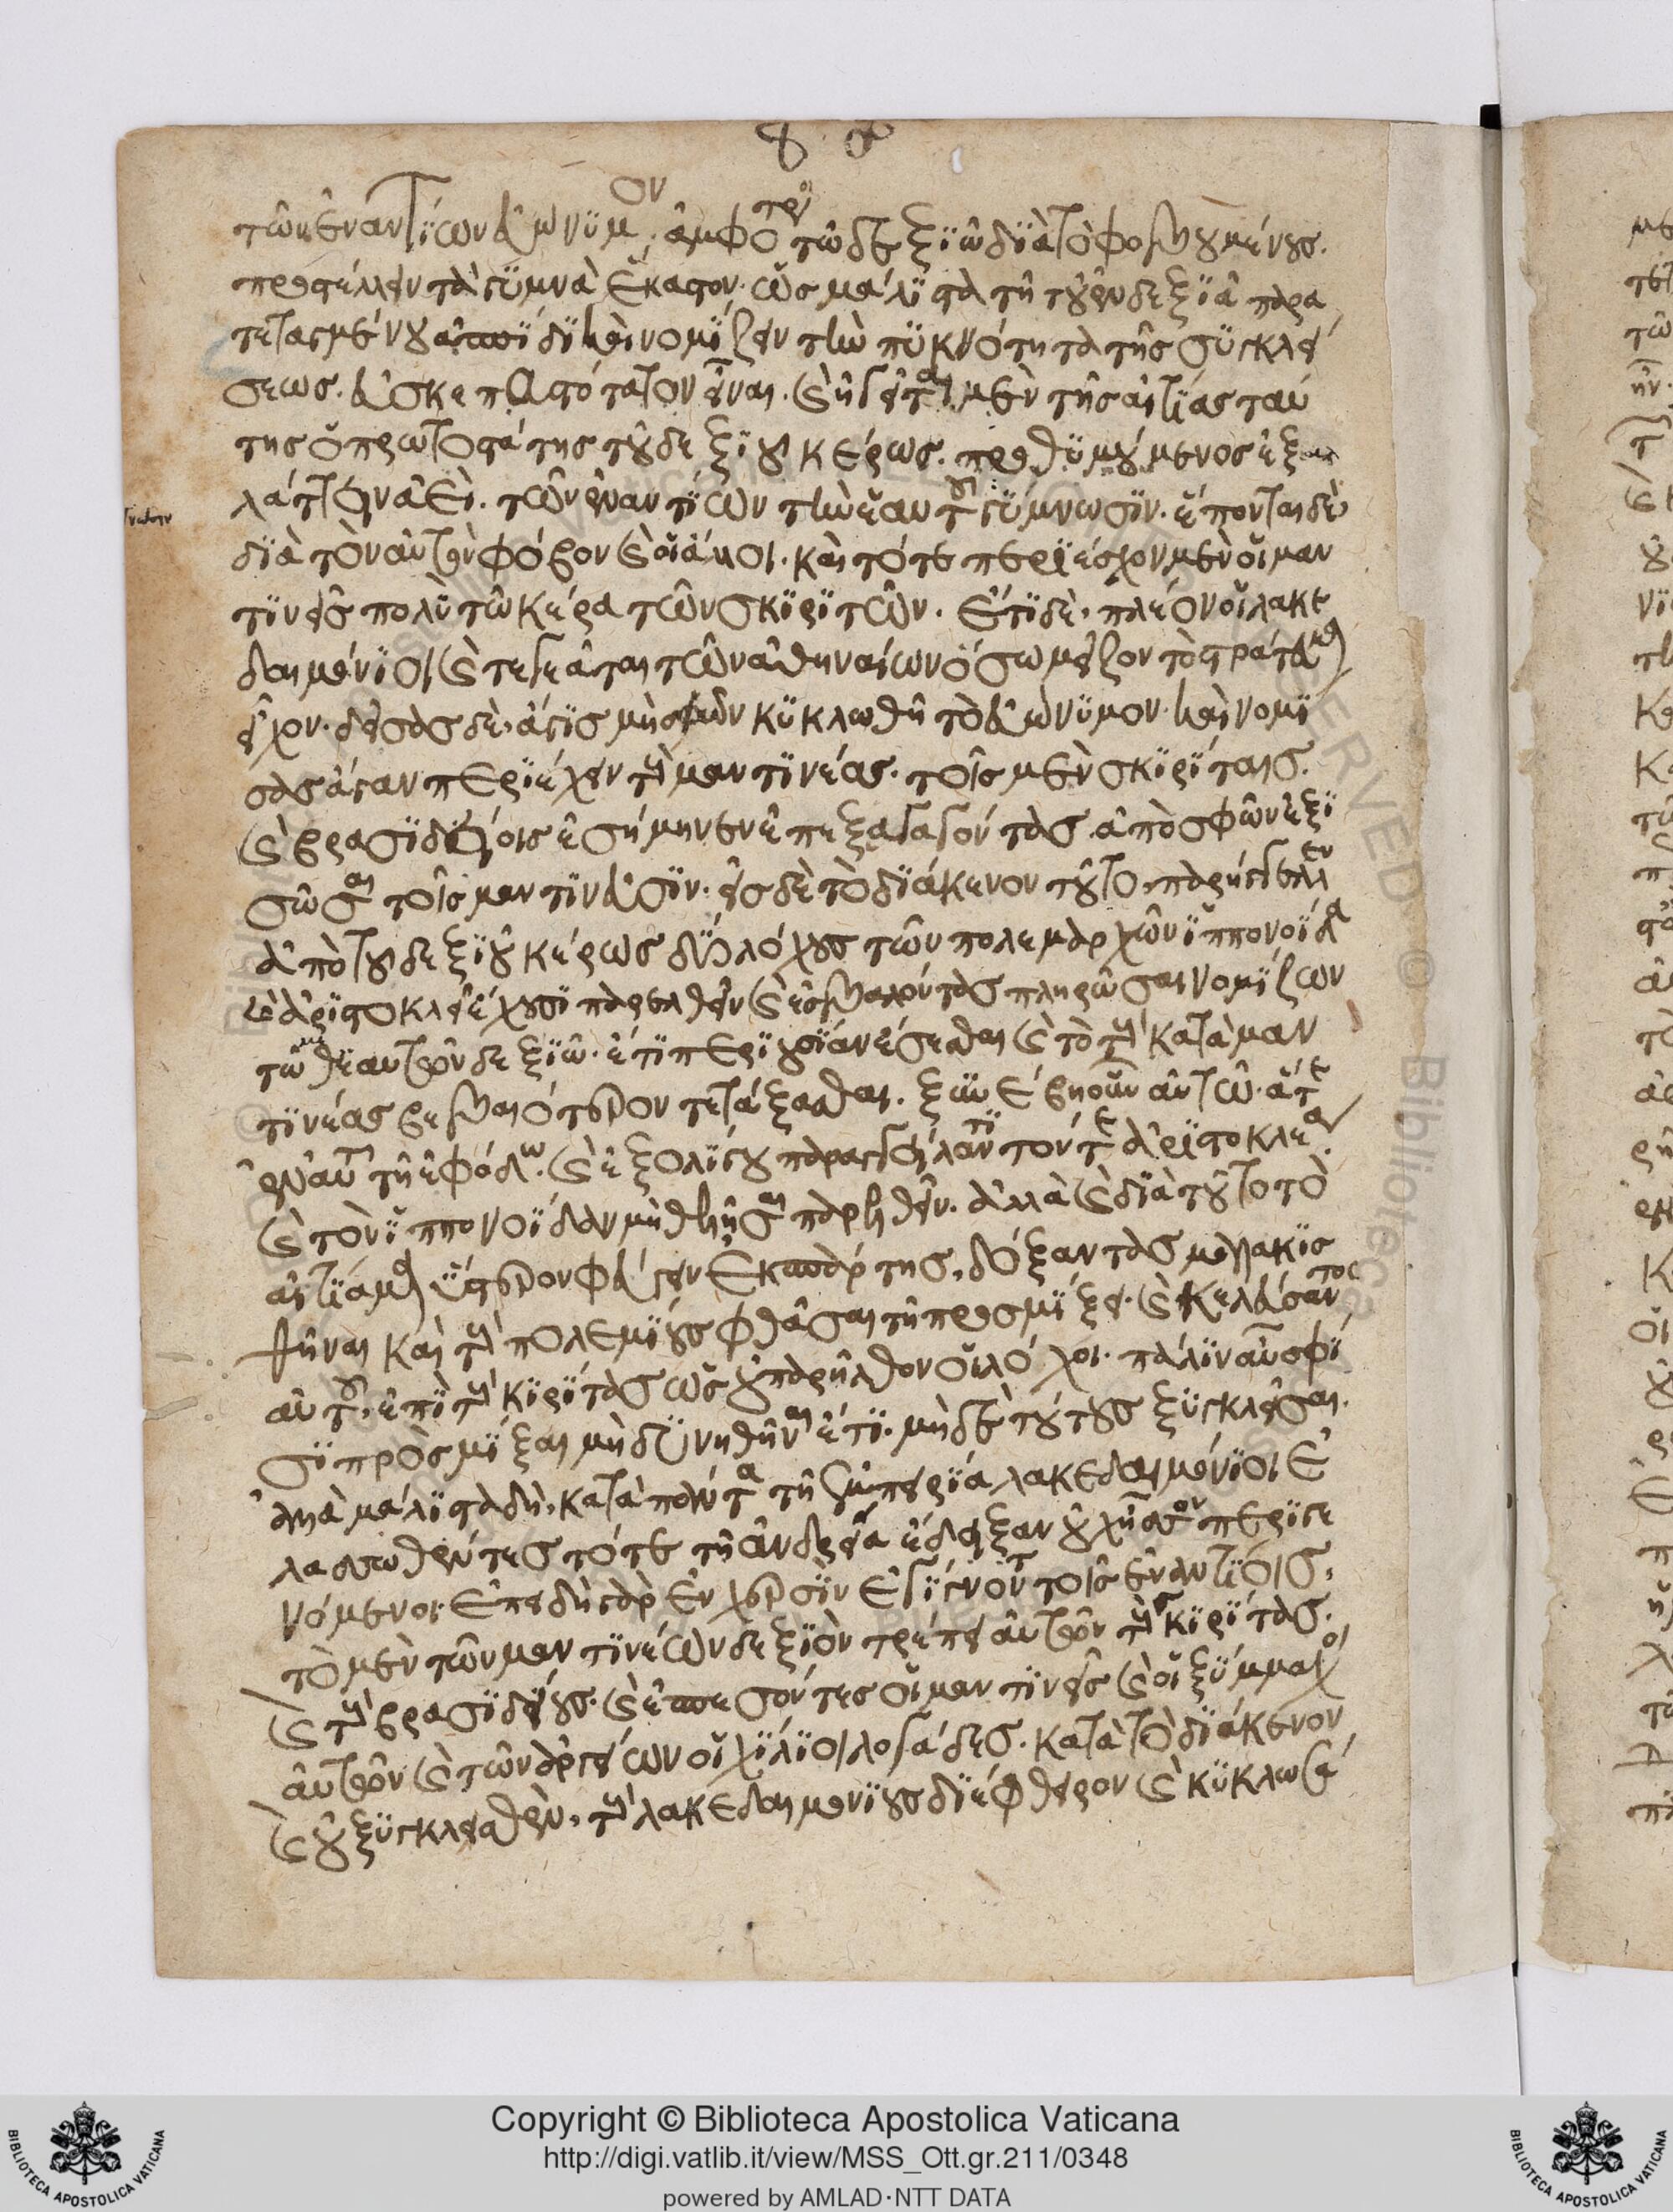 τῶν ἐναντίων εὐώνυμον ἀμφότεροι τῷ δεξιῷ διὰ τὸ φοβουμένους
προστέλλειν τὰ γυμνὰ ἕκαστον ὡς μάλιστα τῇ τοῦ ἐν δεξιᾷ παρα
τεταγμένου ἀσπίδι καὶ νομίζειν τὴν πυκνότητα τῆς συγκλεί
σεως εὐσκεπαστότατον εἶναι. καὶ ἡγεῖται μὲν τῆς αἰτίας ταύ
της ὁ πρωτοστάτης τοῦ δεξιοῦ κέρως. προθυμούμενος ἐξαλ
λάττειν ἀεὶ τῶν ἐναντίων τὴν ἑαυτοῦ γύμνωσιν. ἕπονται δὲ
διὰ τὸν αὐτὸν φόβον καὶ οἱ ἄλλοι. καὶ τότε περιέσχον μὲν οἱ μαν
τινεῖς πολὺ τῷ κέρᾳ τῶν σκιριτῶν. ἔτι δὲ πλέον οἱ λακε
δαιμόνιοι καὶ τεγεᾶται τῶν ἀθηναίων ὅσῳ μεῖζον τὸ στράτευμα
εἶχον. δείσας δὲ ἆγις μὴ σφῶν κυκλωθῇ τὸ εὐώνυμον καὶ νομί
σας ἄγαν περιέχειν τοὺς μαντινέας. τοῖς μὲν σκιρίταις
καὶ βρασιδείοις ἐσήμηνεν ἐπεξαγαγόντας ἀπὸ σφῶν ἐξι
σῶσαι τοῖς μαντινεῦσιν. ἐς δὲ τὸ διάκενον τοῦτο παρήγγελλεν
ἀπὸ τοῦ δεξιοῦ κέρως δύο λόχους τῶν πολεμάρχων ἱππονοΐδᾳ
καὶ ἀριστοκλεῖ ἔχουσι παρελθεῖν καὶ ἐσβαλόντας πληρῶσαι νομίζων
τῷ θ' ἑαυτῶν δεξιῷ ἔτι περιουσίαν ἔσεσθαι καὶ τὸ τοὺς κατὰ μαν
τινέας βεβαιότερον τετάξασθαι. ξυνέβη οὖν αὐτῷ ἅτε
ἐν αὐτῇ τῇ ἐφόδῳ καὶ ἐξ ὀλίγου παραγγείλαντι τόν τε ἀριστοκλέα
καὶ τὸν ἱππονοΐδαν μὴ θελῆσαι παρελθεῖν. ἀλλὰ καὶ διὰ τοῦτο τὸ
αἰτίαμα ὕστερον φεύγειν ἐκ σπάρτης δόξαντας μαλακισ
θῆναι καὶ τοὺς πολεμίους φθάσαι τῇ προσμίξει. καὶ κελεύσαντος
αὐτοῦ, ἐπὶ τοὺς κιρίτας ὡς οὐ παρῆλθον οἱ λόχοι πάλιν αὖ σφί
σι προσμίξαι μὴ δυνηθῆναι ἔτι μηδὲ τούτους ξυγκλεῖσαι.
ἀλλὰ μάλιστα δὴ κατὰ πάντα τῇ ἐμπειρίᾳ λακεδαιμόνιοι ἐ
λασσωθέντες τότε τῇ ἀνδρείᾳ ἔδειξαν οὐχ ἧσσον περιγε
νόμενοι ἐπειδὴ γὰρ ἐν χερσὶν ἐγίγνοντο τοῖς ἐναντίοις
τὸ μὲν τῶν μαντινέων δεξιὸν τρέπει αὐτῶν τοὺς κιρίτας
καὶ τοὺς βρασιδείους. καὶ ἐσπεσόντες οἱ μαντινεῖς καὶ οἱ ξύμμαχοι
αὐτῶν καὶ τῶν ἀργείων οἱ χίλιοι λογάδες κατὰ τὸ διάκενον
καὶ οὐ ξυγκλεισθὲν τοὺς λακεδαιμονίους διέφθειρον καὶ κυκλωσά
Copyright © Biblioteca Apostolica Vaticana
http://digi.vatlib.it/view/MSS_Ott.gr.211/0348
powered by AMLAD·NTT DATA
BIBLIOTECA APOSTOLICA VATICANA
BIBLIOTECA APOSTOLICA VATICANA